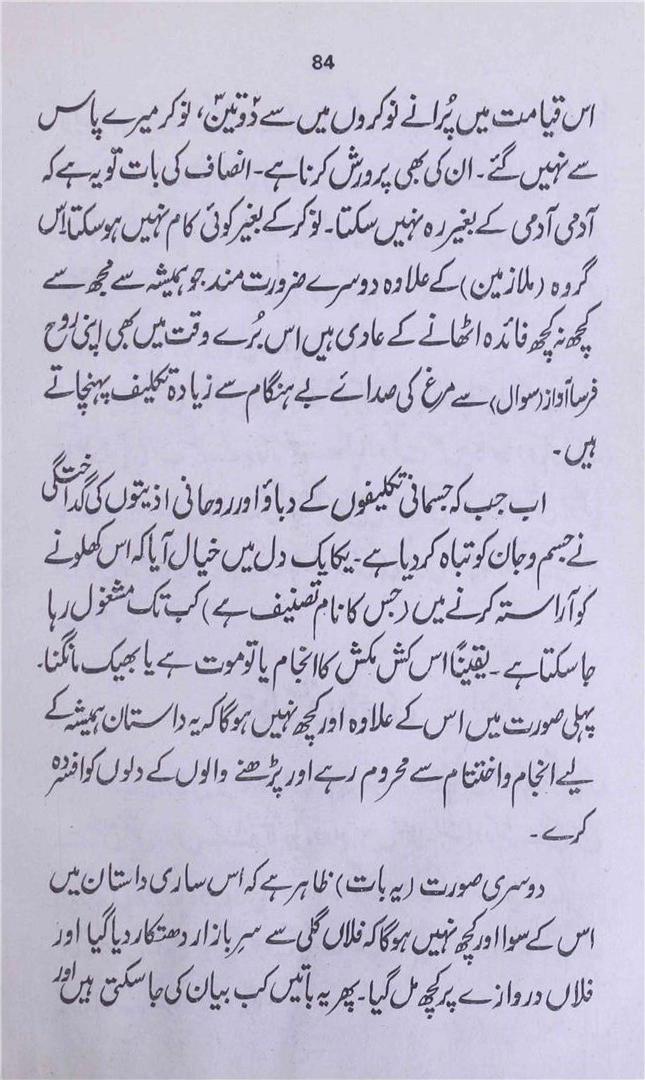 84
اس قیامت میں پُرانے نوکروں میں سے دو تین، نوکر میرے پاس
سے نہیں گئے۔ ان کی بھی پرورش کرنا ہے۔ انصاف کی بات تو یہ ہے کہ
آدمی آدمی کے بغیر رہ نہیں سکتا۔ نوکر کے بغیر کوئی کام نہیں ہو سکتا اس
گروہ (ملازمین) کے علاوہ دوسرے ضرورت مند جو ہمیشہ سے مجھ سے
کچھ نہ کچھ فائدہ اٹھانے کے عادی ہیں اس بُرے وقت میں بھی اپنی روح
فرسا آواز (سوال) سے مرغ کی صدائے بے ہنگام سے زیادہ تکلیف پہنچاتے
ہیں۔
اب جب کہ جسمانی تکلیفوں کے دباؤ اور روحانی اذیتوں کی گداختگی
نے جسم و جان کو تباہ کر دیا ہے۔ یکایک دل میں خیال آیا کہ اس کھلونے
کو آراستہ کرنے میں (جس کا نام تصنیف ہے) کب تک مشغول رہا
جا سکتا ہے۔ یقیناً اس کش مکش کا انجام یا تو موت ہے یا بھیک مانگنا۔
پہلی صورت میں اس کے علاوہ اور کچھ نہیں ہو گا کہ یہ داستان ہمیشہ کے
لیے انجام و اختتام سے محروم رہے اور پڑھنے والوں کے دلوں کو افسردہ
کرے۔
دوسری صورت (یہ بات) ظاہر ہے کہ اس ساری داستان میں
اس کے سوا اور کچھ نہیں ہو گا کہ فلاں گلی سے سرِ بازار دھتکار دیا گیا اور
فلاں دروازے پر کچھ مل گیا۔ پھر یہ باتیں کب بیان کی جا سکتی ہیں اور